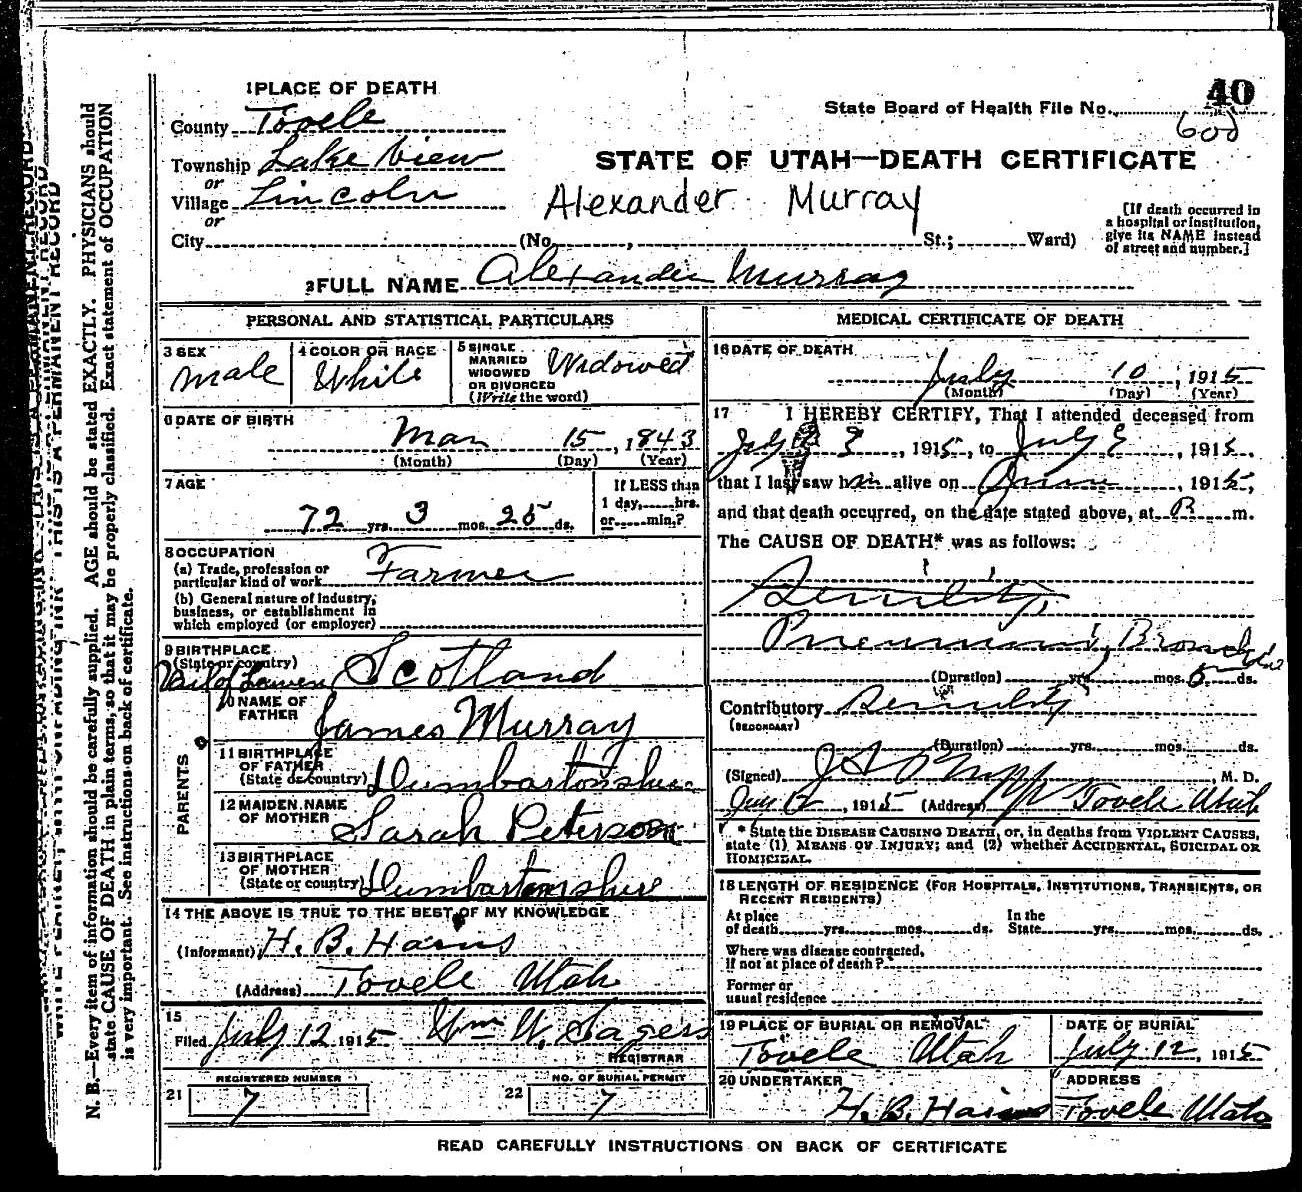 40
1 PLACE OF DEATH
State Board of Health File No. 600
County Tooele
Township Lake View
STATE OF UTAH—DEATH CERTIFICATE
or
Village Lincoln
Alexander Murray
or
City (No. , St.; Ward)
[If death occurred in a hospital or institution, give its NAME instead of street and number.]
2 FULL NAME Alexander Murray
PERSONAL AND STATISTICAL PARTICULARS
3 SEX
Male
4 COLOR OR RACE
White
5 SINGLE
MARRIED
WIDOWED
OR DIVORCED
(Write the word)
Widowed
6 DATE OF BIRTH
Mar 15, 1843
(Month) (Day) (Year)
7 AGE
72 yrs. 3 mos. 25 ds.
If LESS than
1 day, hrs.
or min.?
8 OCCUPATION
(a) Trade, profession or
particular kind of work Farmer
(b) General nature of industry,
business, or establishment in
which employed (or employer)
9 BIRTHPLACE
(State or country) Scotland
10 NAME OF
FATHER James Murray
PARENTS
11 BIRTHPLACE
OF FATHER
(State or country) Dumbartonshire
12 MAIDEN NAME
OF MOTHER Sarah Peterson
13 BIRTHPLACE
OF MOTHER
(State or country) Dumbartonshire
14 THE ABOVE IS TRUE TO THE BEST OF MY KNOWLEDGE
(Informant) H. B. Hains
(Address) Tooele Utah
15
Filed July 12 1915 Wm W. Sagers
REGISTRAR
REGISTERED NUMBER
21 7
NO. OF BURIAL PERMIT
22 7
MEDICAL CERTIFICATE OF DEATH
16 DATE OF DEATH
July 10, 1915
(Month) (Day) (Year)
17 I HEREBY CERTIFY, That I attended deceased from
July 3, 1915, to July, 1915.
that I last saw him alive on, 1915,
and that death occurred, on the date stated above, at m.
The CAUSE OF DEATH* was as follows:
Senility
Pneumonia, Bronchial
(Duration) yrs. mos. ds.
Contributory Senility
(SECONDARY)
(Duration) yrs. mos. ds.
(Signed) M. D.
12, 1915 (Address) Tooele Utah
* State the DISEASE CAUSING DEATH, or, in deaths from VIOLENT CAUSES,
state (1) MEANS OF INJURY; and (2) whether ACCIDENTAL, SUICIDAL OR
HOMICIDAL.
18 LENGTH OF RESIDENCE (FOR HOSPITALS, INSTITUTIONS, TRANSIENTS, OR
RECENT RESIDENTS)
At place
of death yrs. mos. ds.
In the
State yrs. mos. ds.
Where was disease contracted,
If not at place of death?
Former or
usual residence
19 PLACE OF BURIAL OR REMOVAL
Tooele Utah
DATE OF BURIAL
July 12, 1915
20 UNDERTAKER
H. B. Hains
ADDRESS
Tooele Utah
READ CAREFULLY INSTRUCTIONS ON BACK OF CERTIFICATE
N. B.—Every item of information should be carefully supplied. AGE should be stated EXACTLY. PHYSICIANS should
state CAUSE OF DEATH in plain terms, so that it may be properly classified. Exact statement of OCCUPATION
is very important. See instructions on back of certificate.